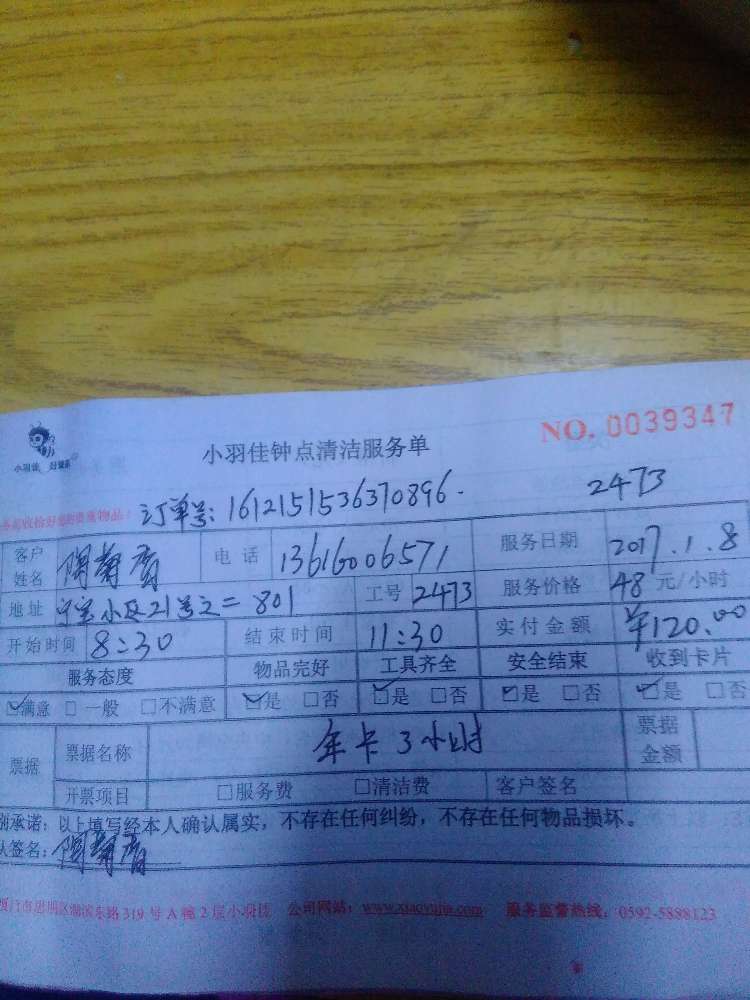 小羽佳钟点清洁服务单 NO. 0039347
小羽佳
订单号: 1612151536370896. 2473
客户姓名 电话 13616006571 服务日期 2017.1.8
地址 小区21号之二 801 工号 2473 服务价格 48元/小时
开始时间 8:30 结束时间 11:30 实付金额 ¥120.00
服务态度 物品完好 工具齐全 安全结束 收到卡片
☑满意 □一般 □不满意 ☑是 □否 ☑是 □否 ☑是 □否 ☑是 □否
票据 票据名称 年卡3小时 票据金额
开票项目 □服务费 □清洁费 客户签名
承诺：以上填写经本人确认属实，不存在任何纠纷，不存在任何物品损坏。
签名：
厦门市思明区湖滨东路319号A幢2层小羽佳 公司网站：www.xiaoyujia.com 服务监督热线：0592-5888123